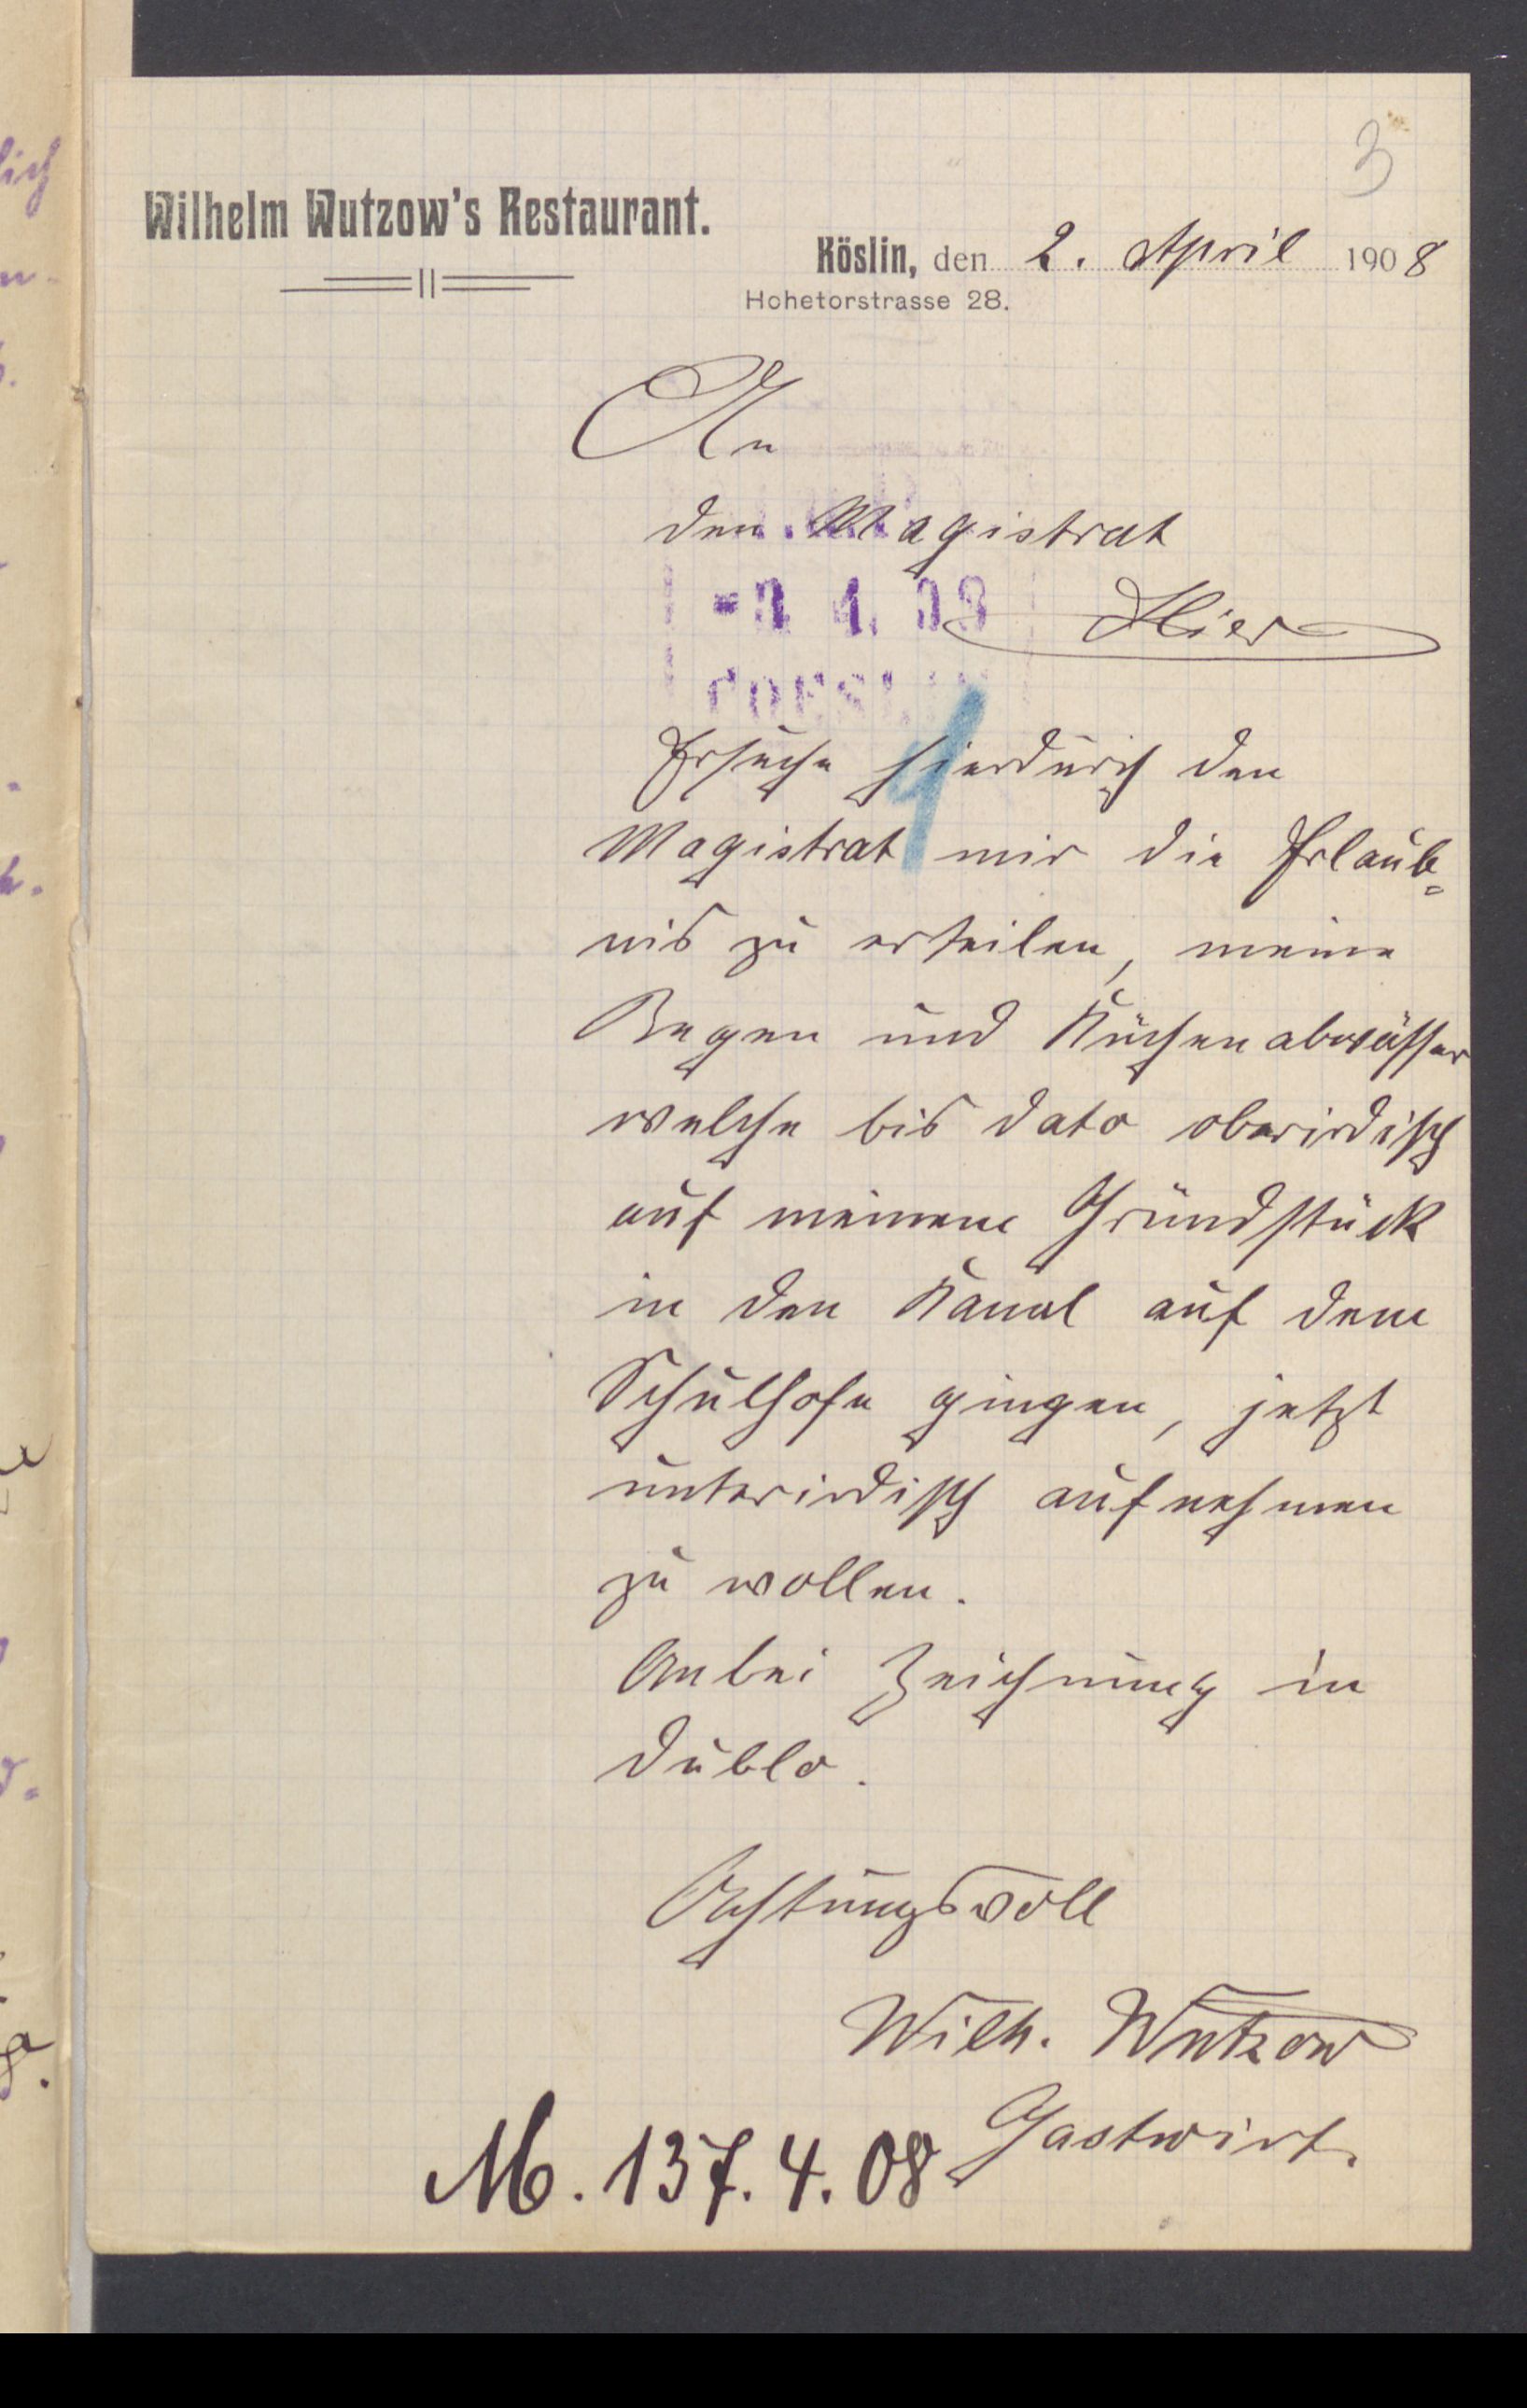 3
Wilhelm Wutzow's Restaurant.
Köslin, den 2. April 1908
Hohetorstrasse 28.
An
den Magistrat
Hier
4. 08
COESLIN
Ersuche hierdurch den
Magistrat mir die Erlaub=
nis zu erteilen, meine
Regen und Küchenabwässer
welche bis dato oberirdisch
auf meinem Grundstück
in den Kanal auf dem
Schulhofe gingen, jetzt
unterirdisch aufnehmen
zu wollen.
Anbei Zeichnung in
dublo.
Achtungsvoll
Wilh. Wutzow
Gastwirt.
M. 137. 4. 08